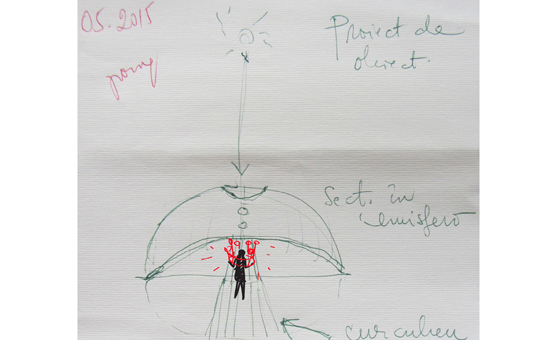 05.2015
Proiect de
obiect.
Sect. în
emisferă
curcubeu